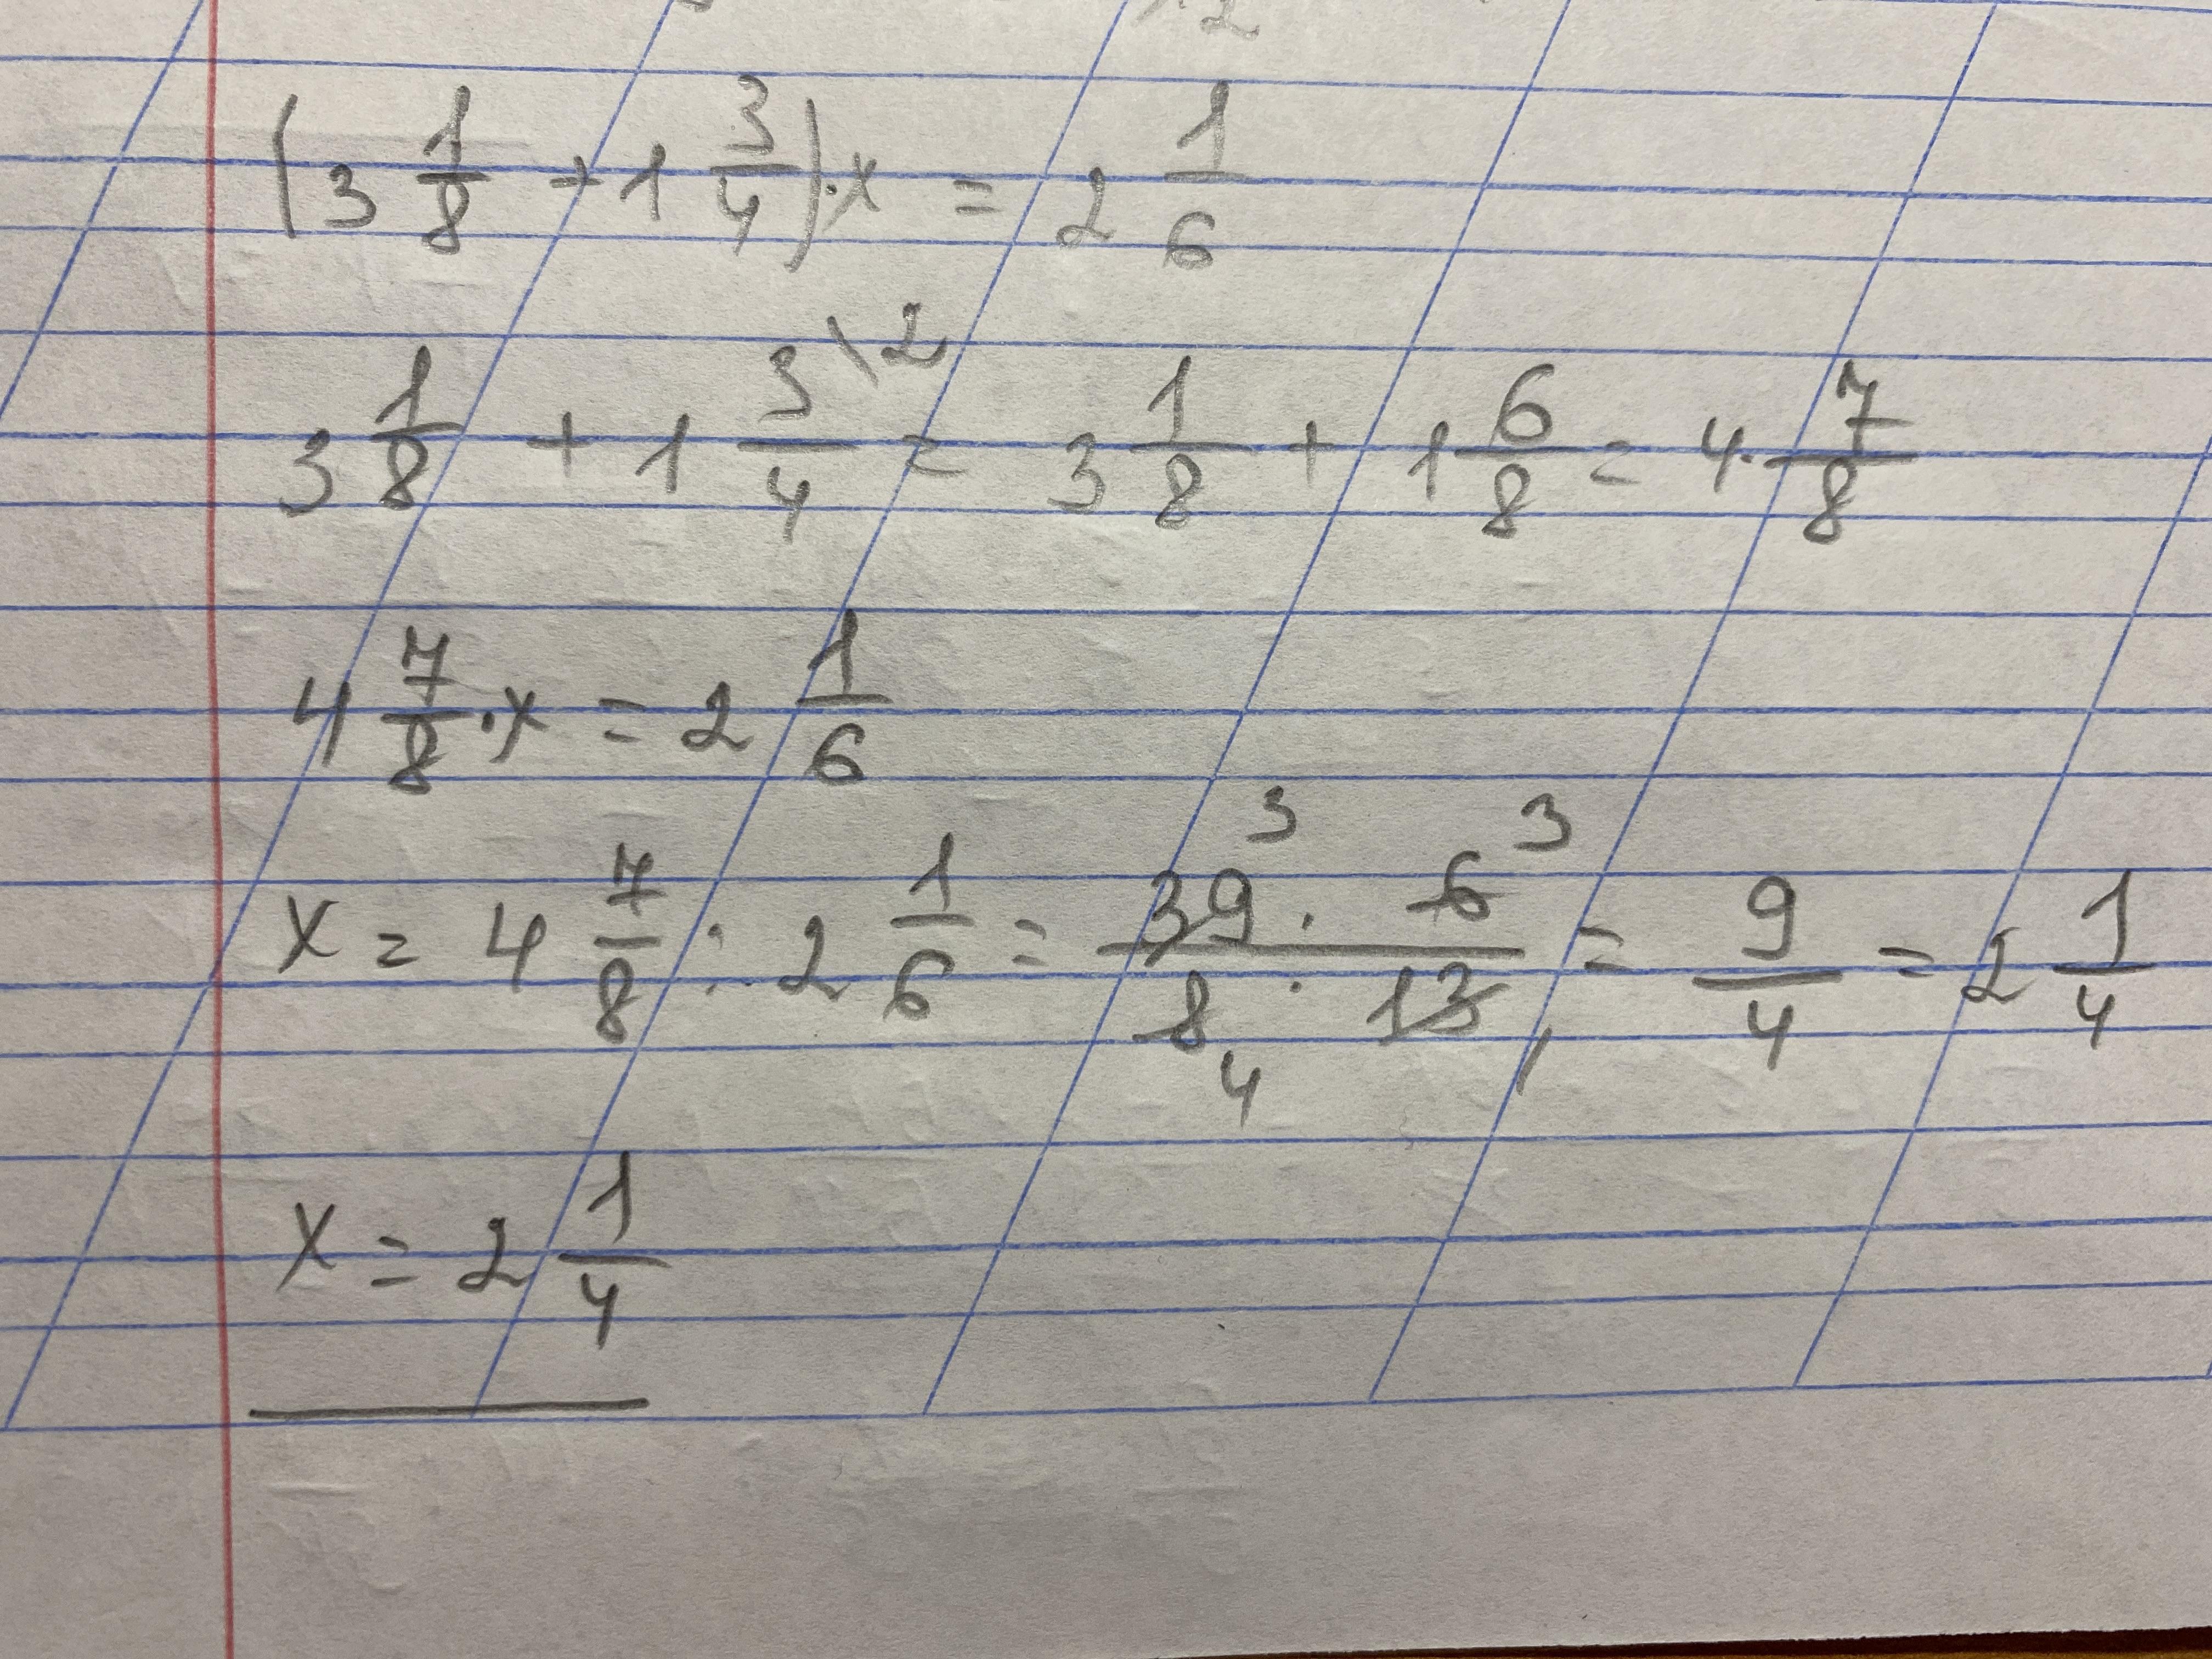 (3 1/8 + 1 3/4) · x = 2 1/6
3 1/8 + 1 3\2/4 = 3 1/8 + 1 6/8 = 4 · 7/8
4 7/8 · x = 2 1/6
x = 4 7/8 : 2 1/6 = 39 3 · 6 3 / 8 4 · 13 1 = 9/4 = 2 1/4
x = 2 1/4